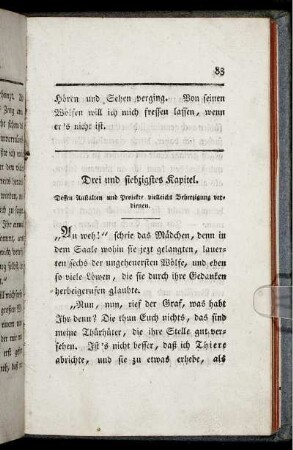 83
Hören und Sehen verging. Von seinen
Wölfen will ich mich fressen lassen, wenn
er's nicht ist.
Drei und siebzigstes Kapitel.
Dessen Anstalten und Projekte vielleicht Beherzigung ver-
dienen.
„Au weh!“ schrie das Mädchen, denn in
dem Saale wohin sie jezt gelangten, lauer-
ten sechs der ungeheuersten Wölfe, und eben
so viele Löwen, die sie durch ihre Gedanken
herbeigerufen glaubte.
„Nun, nun, rief der Graf, was habt
Ihr denn? Die thun Euch nichts, das sind
meine Thürhüter, die ihre Stelle gut ver-
sehen. Ist's nicht besser, daß ich Thiere
abrichte, und sie zu etwas erhebe, als